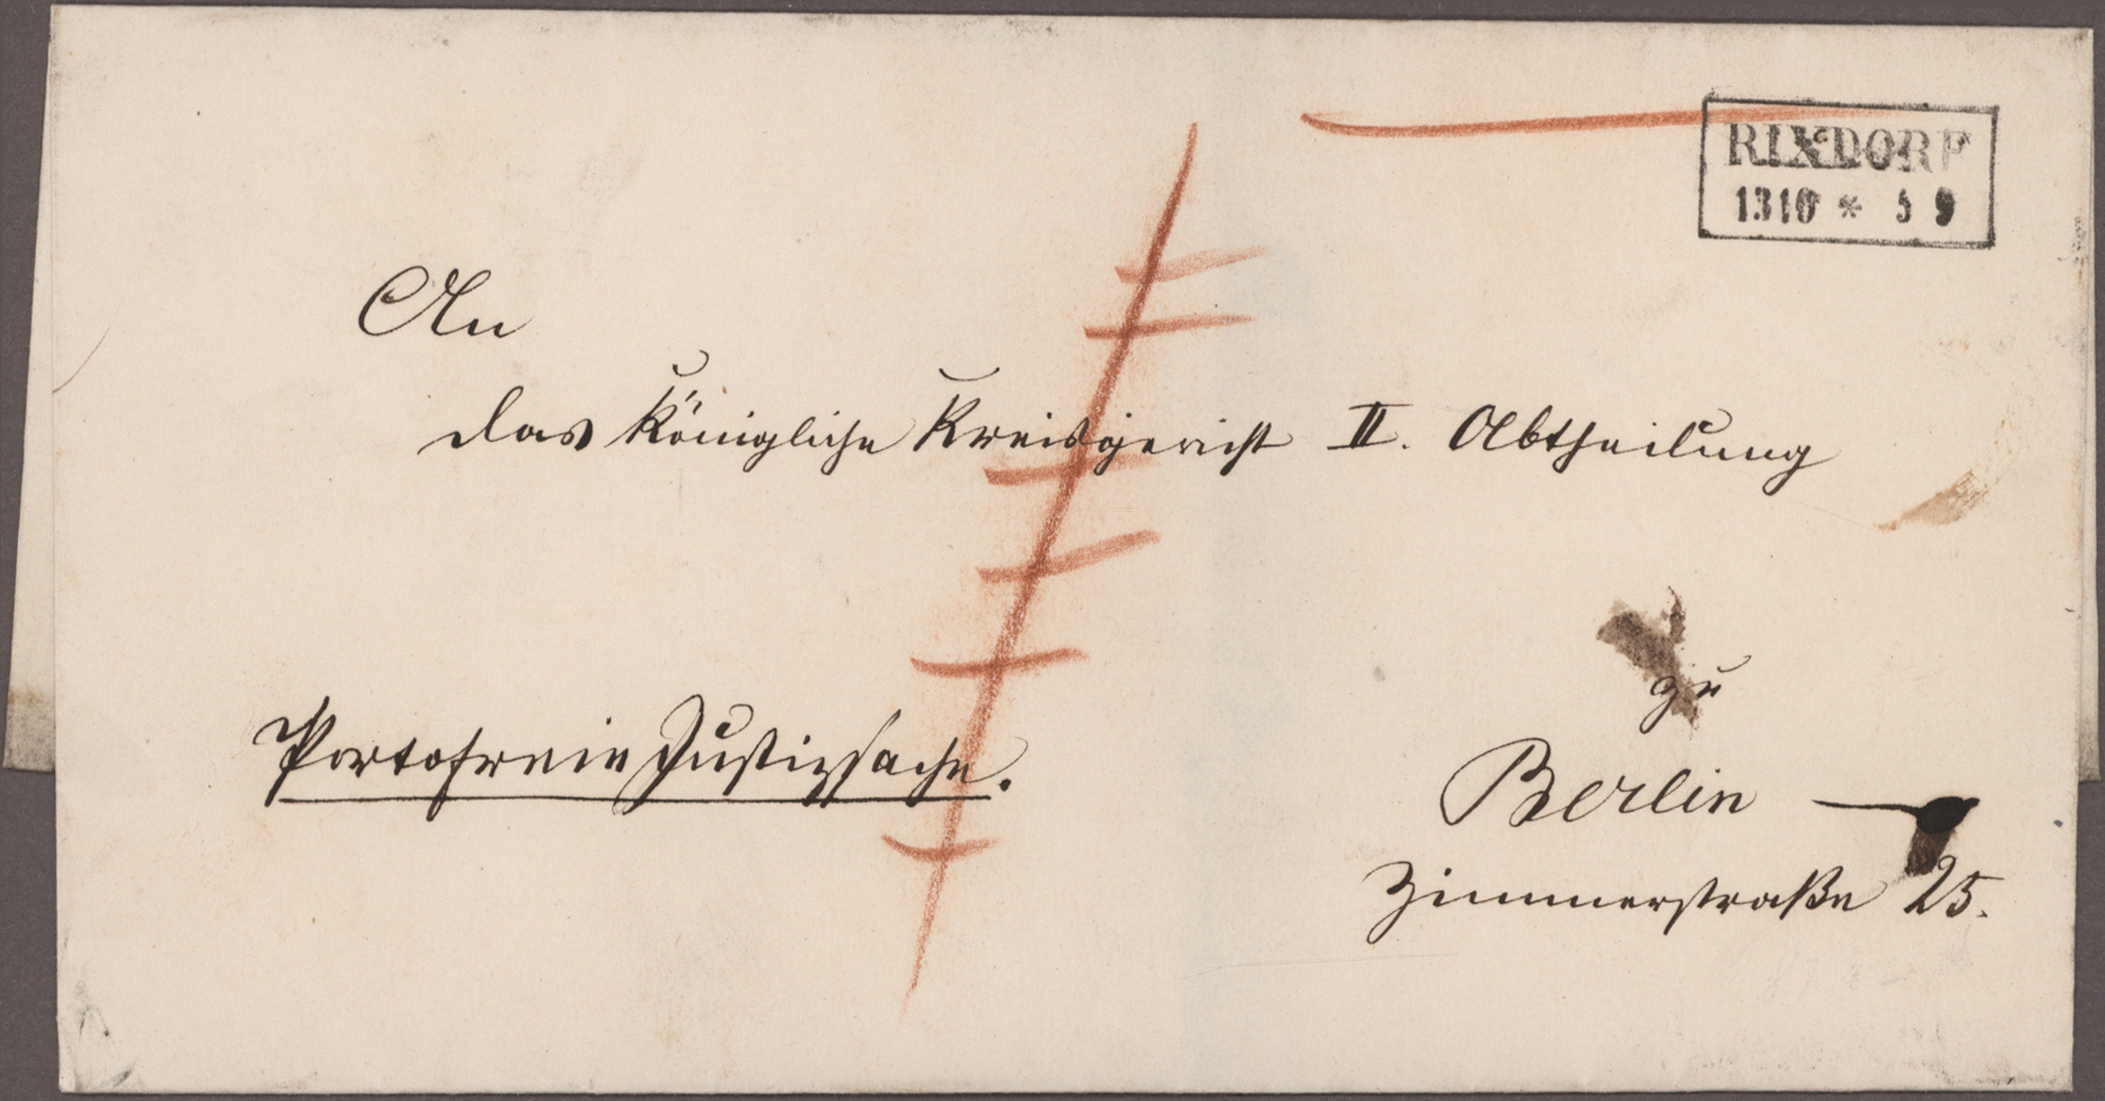 RIXDORF
13 10 * 5 9
An
das Königliche Kreisgericht II. Abtheilung
zu
Portofreie Justizsache.
Berlin
Zimmerstraße 25.